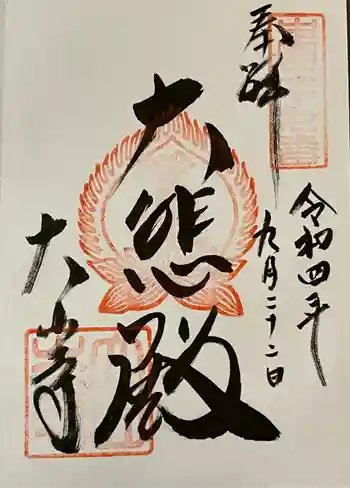 奉拝
令和四年
九月二十二日
大悲殿
大山寺